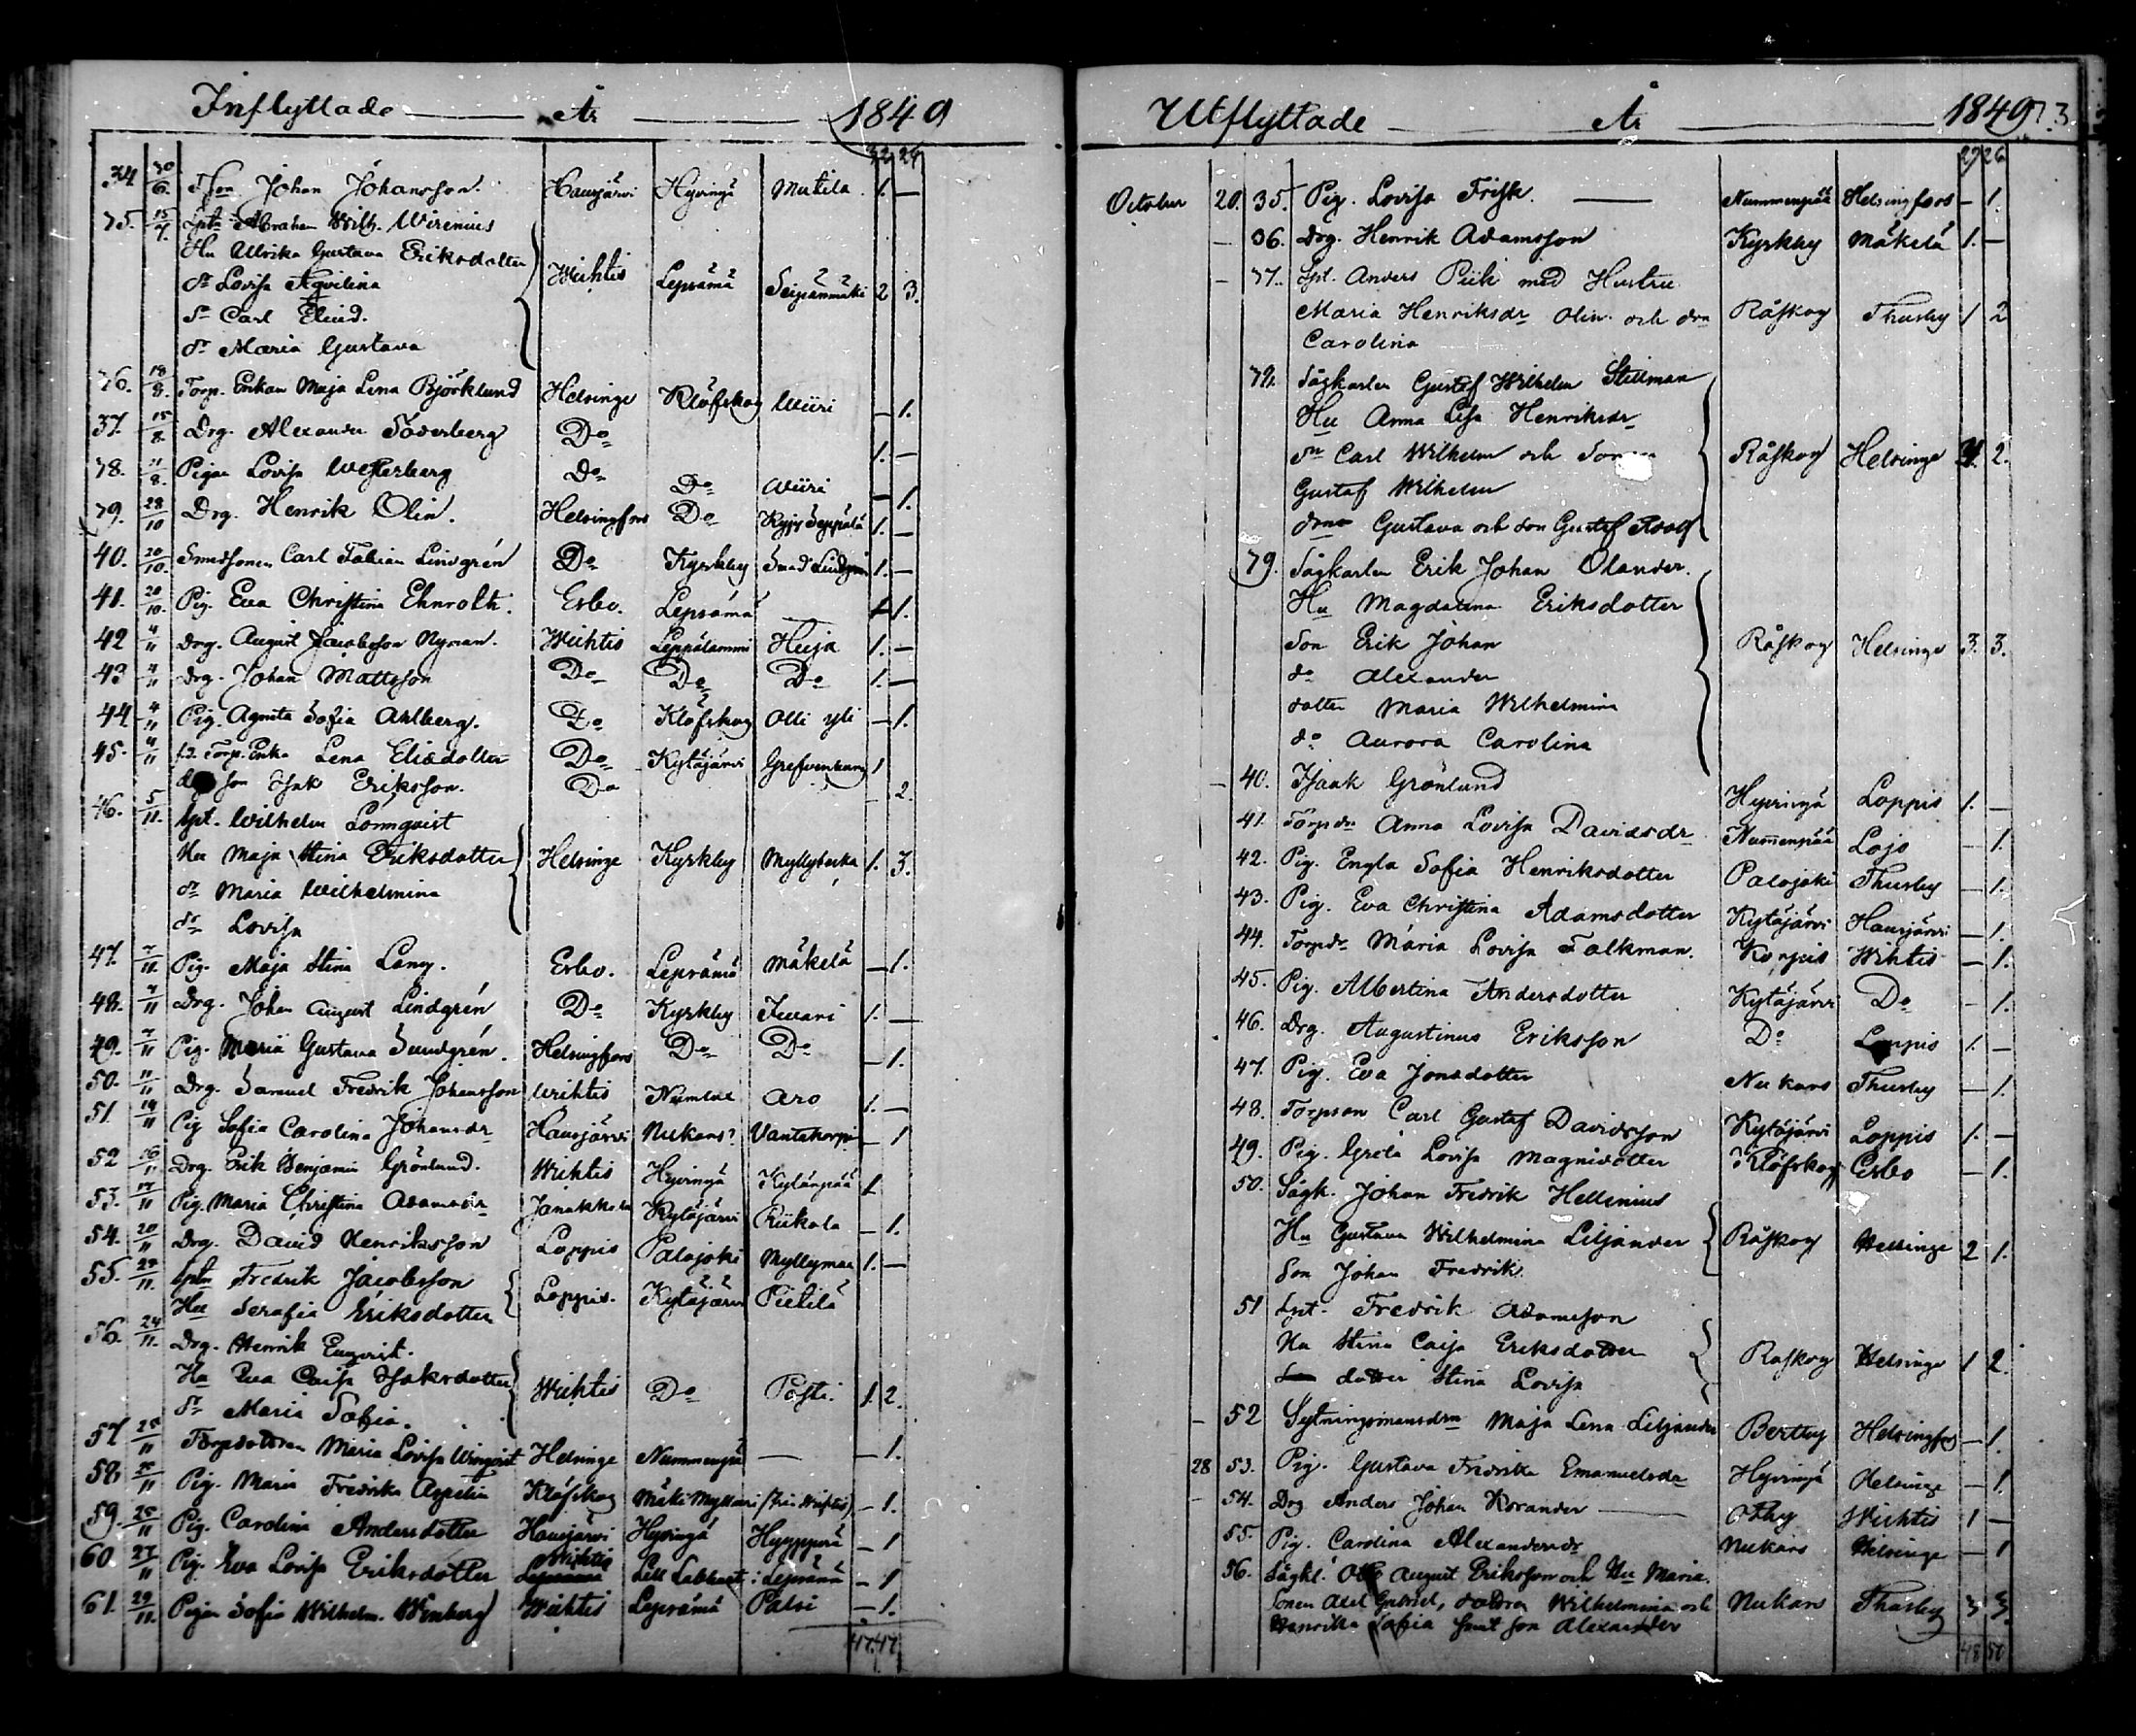 Inflyttade År 1849
32 24
34 30/6. Tson Johan Johansson. Hausjärvi Hyvingä Mutila 1. —
35. 15/7. Spt Abraham Wilh. Wirenius
Hu Ulrika Gustava Eriksdotter
dr Lovisa Aqvilina Wichtis Lepsämä Seipänmäki 2 3.
Sn Carl Eliud.
dr Maria Gustava
36. 18/8. Torp. Enkan Maja Lena Björklund Helsinge Klöfskog Wiiri — 1.
37. 18/8. Drg. Alexander Söderberg Do 1. —
38. 21/8. Pigan Lovisa Westerberg Do Do Wiiri — 1.
39. 28/10 Drg. Henrik Olin. Helsingfors Do Seppälä 1. —
40. 20/10. Smedsonen Carl Fabian Lindgrén Do Kyrkby Smed Lindgrén 1. —
41. 20/10. Pig. Eva Christina Ehnroth. Esbo. Lepsämä — 1.
42 4/11 Drg. August Jacobsson Nyman. Wichtis Leppälammi Heija 1. —
43 4/11 Drg. Johan Mattsson Do Do Do 1. —
44 4/11 Pig. Agneta Sofia Ahlberg. Do Klöfskog Olli yli — 1.
45. 4/11 f.d. Torp. Enka Lena Eliædotter Do Kytäjärvi 1
son Isak Eriksson. Do — 2.
46. 5/11. Spt. Wilhelm Lönnqvist
Hu Maja Stina Eriksdotter Helsinge Kyrkby Myllybacka 1. 3.
dr Maria Wilhelmina
dr Lovisa
47. 7/11. Pig. Maja Stina Lang. Esbo. Lepsämä Mäkelä — 1.
48. 7/11 Drg. Johan August Lindgrén Do Kyrkby Juvari 1. —
49. 7/11 Pig. Maria Gustava Sundgrén. Helsingfors Do Do — 1.
50. 11/11 Drg. Samuel Fredrik Johansson Wichtis Numlax Aro 1. —
51 14/11 Pig Sofia Carolina Johansdr Hausjärvi Nukars? Vantakorpi — 1
52 16/11 Drg. Erik Benjamin Grönlund. Wichtis Hyvingä Kylänpää 1
53. 17/11 Pig. Maria Christina Adamsdr Janakkala Kytäjärvi Riikola — 1.
54. 20/11 Drg. David Henriksson Loppis Palojoki Myllymaa 1. —
55. 23/11. Sptn Fredrik Jacobsson
Hu Serafia Eriksdotter Loppis. Kytäjärvi Pietilä
56. 24/11. Drg. Henrik Enqvist.
Hu Eva Caisa Isaksdotter Wichtis Do Posti. 1. 2.
dr Maria Sofia.
57 25/11 Torpdottren Maria Lovisa Winqvist Helsinge Nummenpää — — 1.
58. 25/11 Pig. Maria Fredrika Aspelin Klöfskog Mäki Myllari (från Wichtis) — 1.
59. 25/11 Pig. Carolina Andersdotter Hausjärvi Hyvingä Hyyppärä — 1
60. 27/11 Pig. Eva Lovisa Eriksdotter Wichtis Lill Labbart i Lepsämä — 1
61. 29/11. Pigan Sofia Wilhelm. Winberg Wichtis Lepsämä Palsi — 1.
47. 47.
Utflyttade År 1849 73
29 26
October 20. 35. Pig. Lovisa Frisk. — Nummenpää Helsingfors — 1.
— 36. Drg. Henrik Adamsson Kyrkby Mäkelä 1. —
— 37. Spt. Anders Piik med Hustru
Maria Henriksdr Olin och dra Råskog Thusby 1 2
Carolina
38. Sågkarlen Gustaf Wilhelm Stillman
Hu Anna Lisa Henriksdr
Sn Carl Wilhelm och Råskog Helsinge 4. 2.
Gustaf Wilhelm
Gustava och son Gustaf Adolf
39. Sågkarlen Erik Johan Olander.
Hu Magdalena Eriksdotter
Son Erik Johan Råskog Helsinge 3. 3.
do Alexander
dotter Maria Wilhelmina
do Aurora Carolina
— 40. Isaak Grönlund Hyvingä Loppis 1. —
41. Torpdr Anna Lovisa Davidsdr Nummenpää Lojo — 1.
42. Pig. Engla Sofia Henriksdotter Palojoki Thusby — 1.
43. Pig. Eva Christina Adamsdotter Kytäjärvi Hausjärvi — 1.
44. Torpdr Maria Lovisa Falkman. Korpis Wihtis — 1.
45. Pig. Albertina Andersdotter Kytäjärvi Do — 1.
46. Drg. Augustinus Eriksson Do Loppis 1. —
47. Pig. Eva Jonsdotter Nukars Thusby — 1.
48. Torpson Carl Gustaf Davidsson Kytäjärvi Loppis 1. —
49. Pig. Greta Lovisa Magnidotter Klöfskog Esbo — 1.
50. Sågk. Johan Fredrik Hellenius
Hu Gustava Wilhelmina Liljander Råskog Helsinge 2 1.
Son Johan Fredrik
51 Spt. Fredrik Adamsson
Hu Stina Caisa Eriksdotter Råskog Helsinge 1 2.
dotter Stina Lovisa
— 52 Sytningsmansdrn Maja Lena Liljander Bertby Helsingfors — 1.
28 53. Pig. Gustava Fredrika Emanuelsdr Hyvingä Helsinge — 1
— 54. Drg Anders Johan Korander — Othy Wichtis 1 —
55. Pig. Carolina Alexandersdr Nukars Helsinge — 1
56. Sågkl. Otto August Eriksson och Hu Maria.
Sonen Axel Gabriel, döttra Wilhelmina och Nukars Thusby 3 3.
Henrika Sofia samt son Alexander
48 50